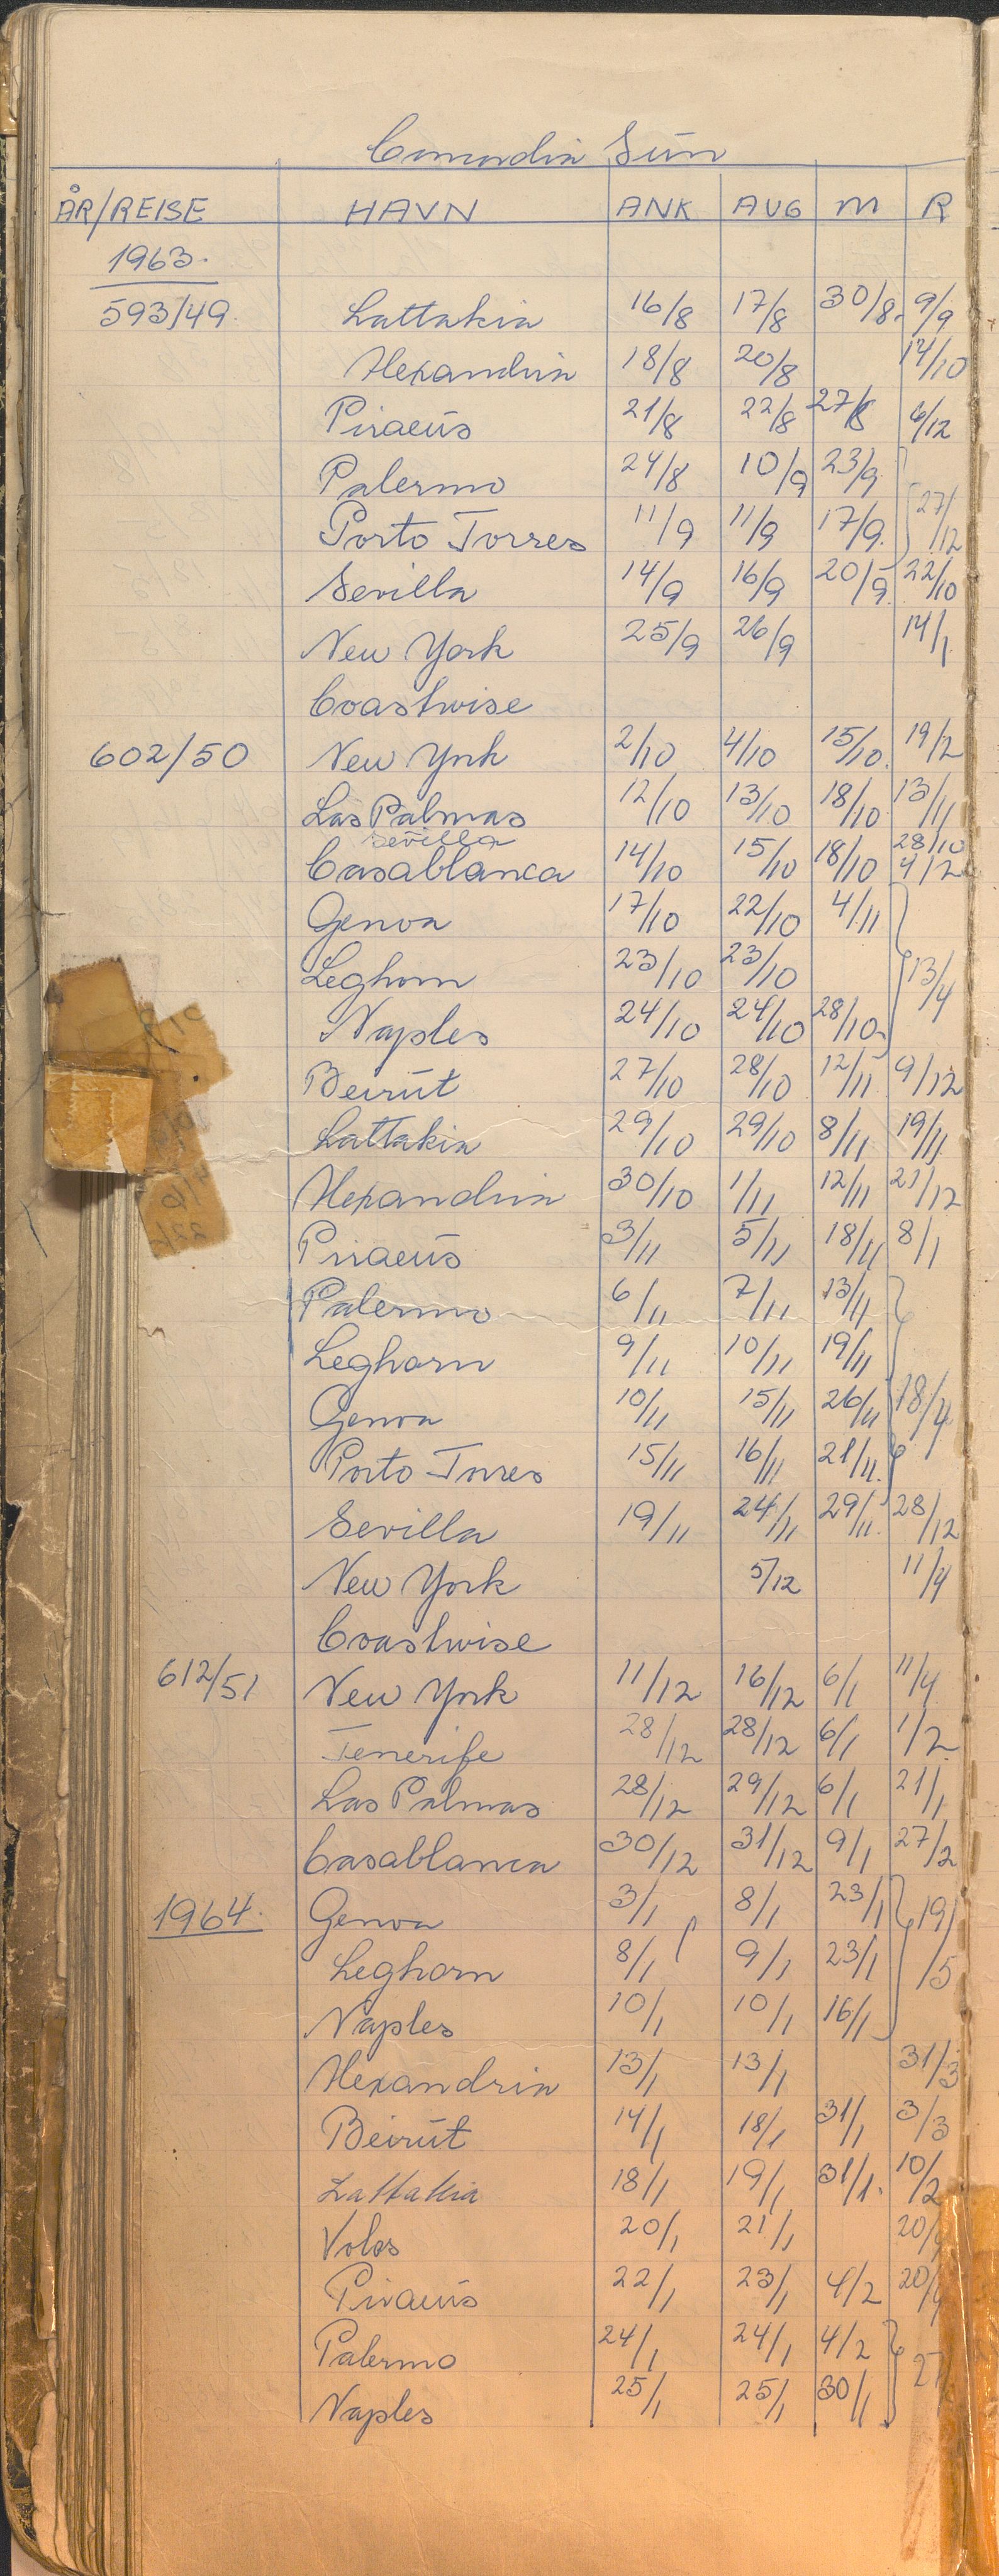 Concordia Sun
ÅR/REISE HAVN ANK AVG M R
1963.
593/49. Lattakia 16/8 17/8 30/8. 9/9
Alexandria 18/8 20/8 14/10
Piraeus 21/8 22/8 27/8 6/12
Palermo 24/8 10/9 23/9
Porto Torres 11/9 11/9 17/9. 27/12
Sevilla 14/9 16/9 20/9 22/10
New York 25/9 26/9 14/1
Coastwise
602/50 New York 2/10 4/10 15/10. 19/2
Las Palmas 12/10 13/10 18/10 13/11
sevilla 28/10
Casablanca 14/10 15/10 18/10 4/12
Genoa 17/10 22/10 4/11
Leghorn 23/10 23/10 13/4
Naples 24/10 24/10 28/10
Beirut 27/10 28/10 12/11 9/12
Lattakia 29/10 29/10 8/11 19/11
Alexandria 30/10 1/11 12/11 21/12
Piraeus 3/11 5/11 18/11 8/1
Palermo 6/11 7/11 13/11
Leghorn 9/11 10/11 19/11
Genoa 10/11 15/11 26/11 18/4
Porto Torres 15/11 16/11 21/11.
Sevilla 19/11 24/11 29/11. 28/12
New York 5/12 11/4
Coastwise
612/51 New York 11/12 16/12 6/1 11/4
Tenerife 28/12 28/12 6/1 1/2
Las Palmas 28/12 29/12 6/1 21/1
Casablanca 30/12 31/12 9/1 27/2
1964. Genoa 3/1 8/1 23/1 19/5
Leghorn 8/1 9/1 23/1
Naples 10/1 10/1 16/1
Alexandria 13/1 13/1 31/3
Beirut 14/1 18/1 31/1 3/3
Lattakia 18/1 19/1 31/1. 10/2
Volos 20/1 21/1
Piraeus 22/1 23/1 4/2
Palermo 24/1 24/1 4/2
Naples 25/1 25/1 30/1